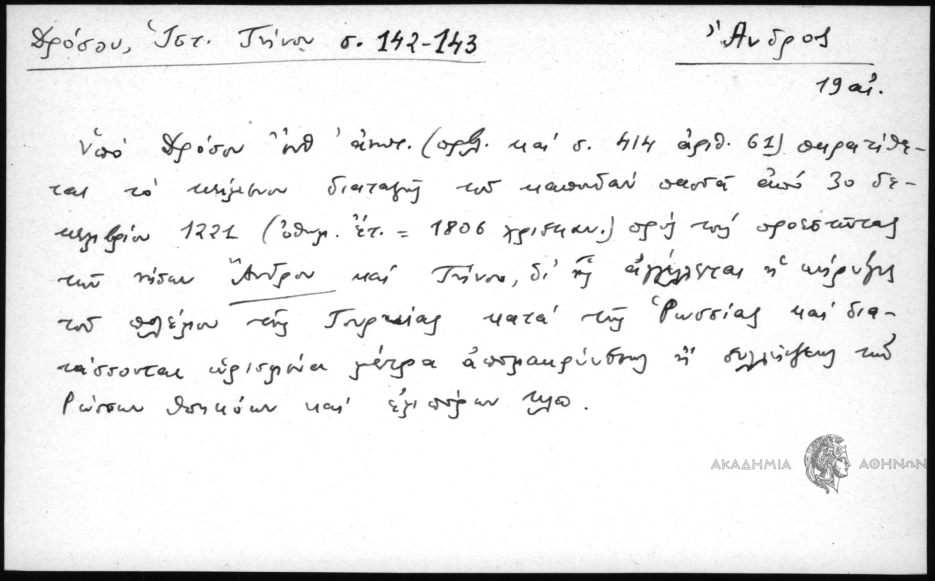 Δρόσου, Ἱστ. Τήνου σ. 142-143
Ἄνδρος
19 αἰ.
Ὑπὸ Δρόσου ἔνθ' ἀνωτ. (πρβλ. καὶ σ. 414 ἀριθ. 61) παρατίθε-
ται τὸ κείμενον διαταγῆς τοῦ καπουδὰν πασᾶ ἀπὸ 30 δε-
κεμβρίου 1221 (ὀθωμ. ἔτ. = 1806 χριστιαν.) πρὸς τοὺς προεστῶτας
τῶν νήσων Ἄνδρου καὶ Τήνου, δι' ἧς ἀγγέλλεται ἡ κήρυξις
τοῦ πολέμου τῆς Τουρκίας κατὰ τῆς Ῥωσσίας καὶ δια-
τάσσονται ὡρισμένα μέτρα ἀπομακρύνσεως ἢ συλλήψεως τῶν
Ρώσσων ὑπηκόων καὶ ἐμπόρων κλπ.
ΑΚΑΔΗΜΙΑ ΑΘΗΝΩΝ